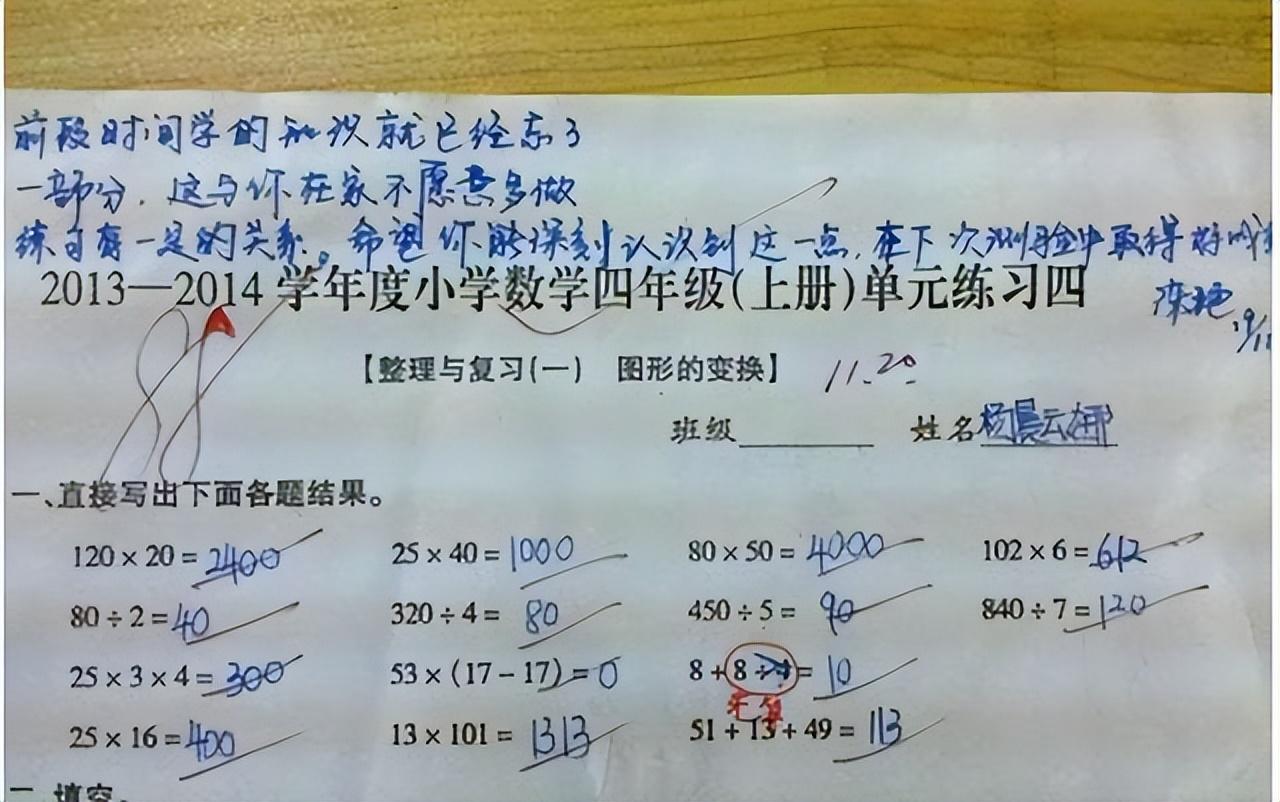 前段时间学的知识就已经忘了
一部分,这与你在家不愿意多做
练习有一定的关系。希望你能深刻认识到这一点,在下次测验中取得好成
2013—2014学年度小学数学四年级(上册)单元练习四
【整理与复习(一) 图形的变换】 11.20
班级 姓名
一、直接写出下面各题结果。
120×20=2400 25×40=1000 80×50=4000 102×6=612
80÷2=40 320÷4=80 450÷5=90 840÷7=120
25×3×4=300 53×(17-17)=0 8+8÷4=10
25×16=400 13×101=1313 51+13+49=113
二、填空。